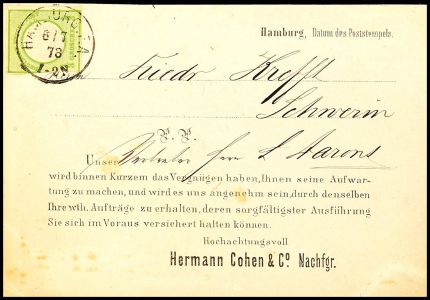 Hamburg, Datum des Poststempels.
HAMBURG I.A.
6/7
73
1-2N
Friedr Krefft
Schwerin
P. P.
Unser Vertreter Herr L Aarons
wird binnen Kurzem das Vergnügen haben, Ihnen seine Aufwar-
tung zu machen, und wird es uns angenehm sein, durch denselben
Ihre wth. Aufträge zu erhalten, deren sorgfältigster Ausführung
Sie sich im Voraus versichert halten können.
Hochachtungsvoll
Hermann Cohen & Co. Nachfgr.